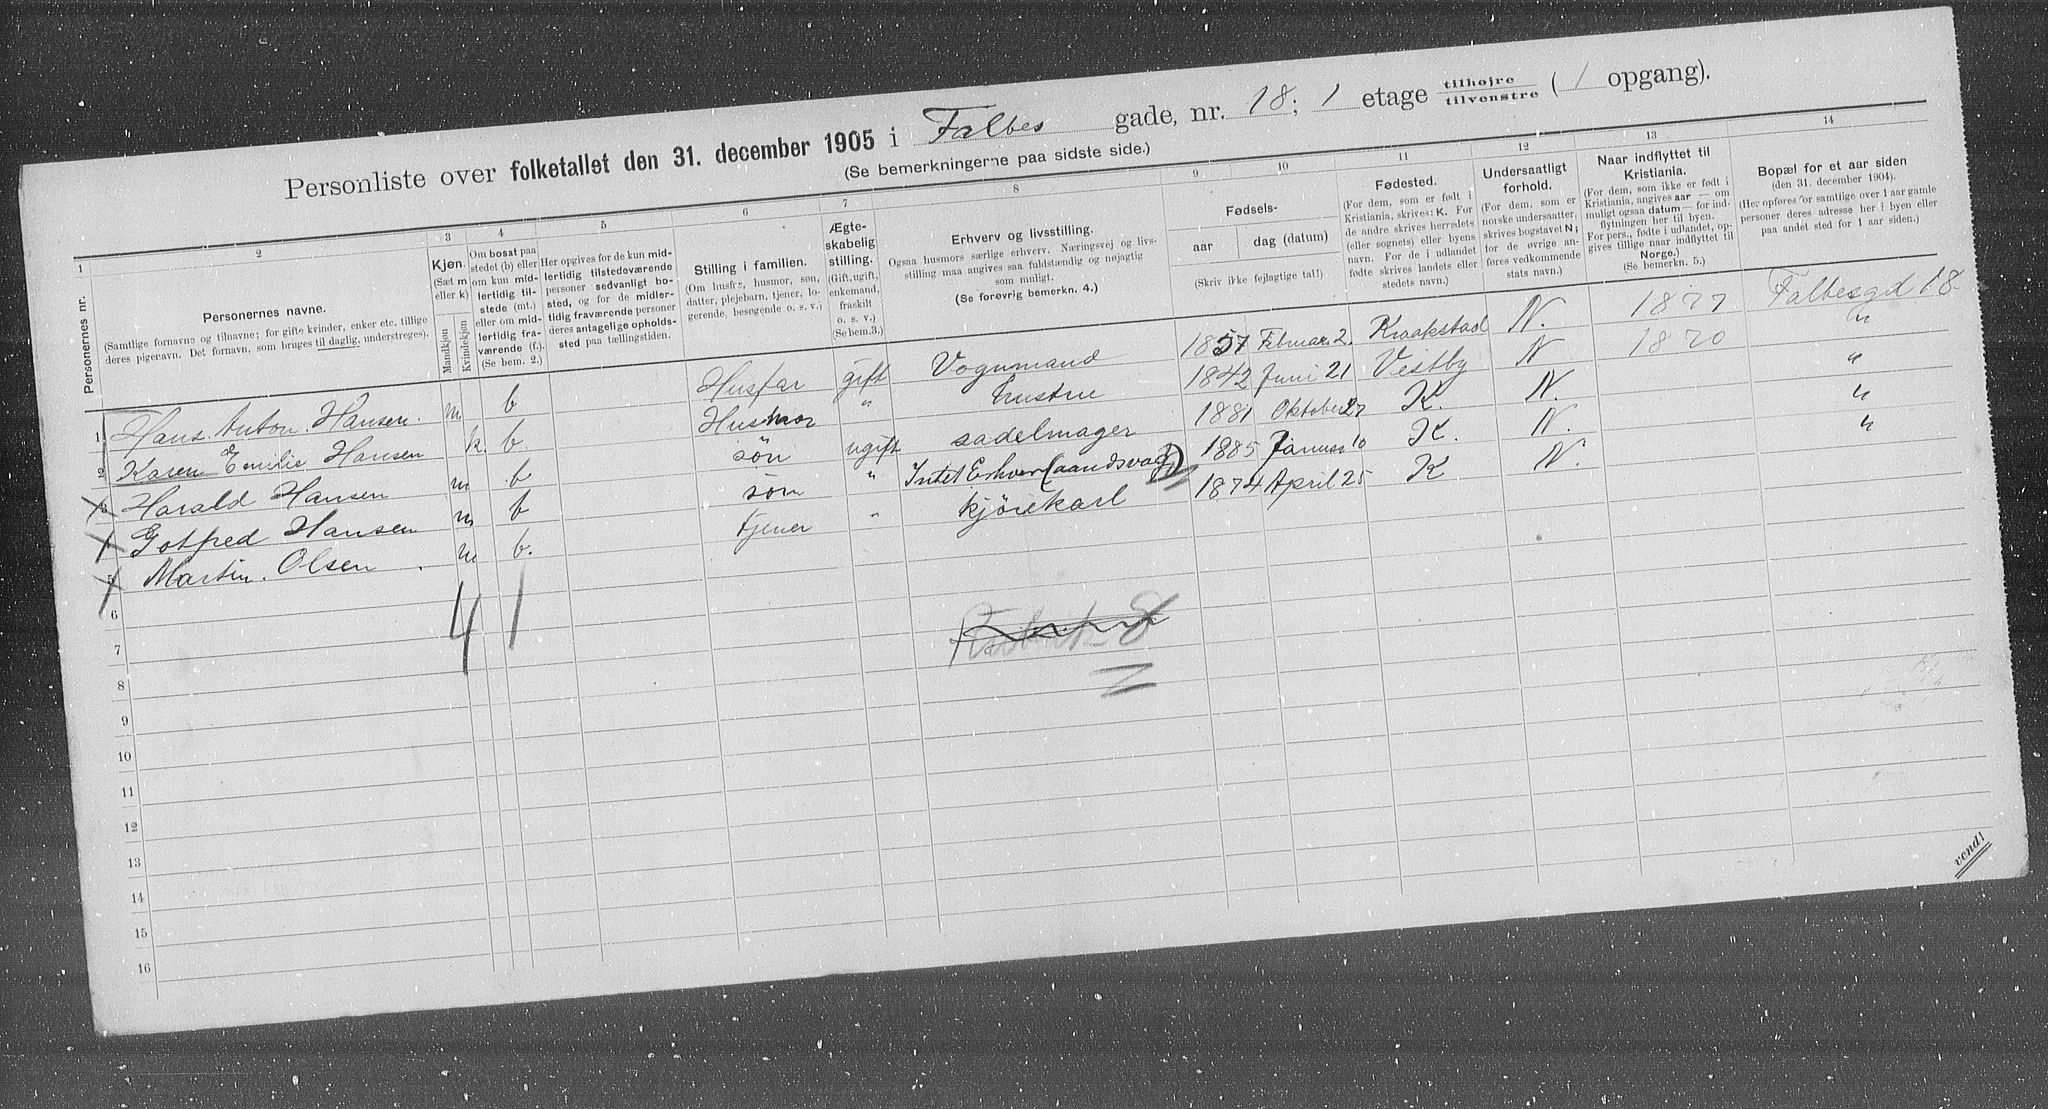 Personliste over folketallet den 31. december 1905 i Falbes gade, nr. 18; 1 etage tilhøjre tilvenstre ( 1 opgang).
(Se bemerkningerne paa sidste side.)
1 2 3 4 5 6 7 8 9 10 11 12 13 14
Personernes nr.
Personernes navne.
(Samtlige fornavne og tilnavne; for gifte kvinder, enker etc. tillige
deres pigenavn. Det fornavn, som bruges til daglig, understreges).
Kjøn.
(Sæt m
eller k)
Mandkjøn
Kvindekjøn
Om bosat paa
stedet (b) eller
om kun mid-
lertidig til-
stede (mt.)
eller om mid-
lertidig fra-
værende (f.).
(Se bem. 2.)
Her opgives for de kun mid-
lertidig tilstedeværende
personer sedvanligt bo-
sted, og for de midler-
tidig fraværende personer
deres antagelige opholds-
sted paa tællingstiden.
Stilling i familien.
(Om husfar, husmor, søn,
datter, plejebarn, tjener, lo-
gerende, besøgende o. s. v.)
Ægte-
skabelig
stilling.
(Gift, ugift,
enkemand,
fraskilt
o. s. v.)
(Se bem.3.)
Erhverv og livsstilling.
Ogsaa husmors særlige erhverv. Næringsvej og livs-
stilling maa angives saa fuldstændig og nøjagtig
som muligt.
(Se forøvrig bemerkn. 4.)
Fødsels-
aar
dag (datum)
(Skriv ikke fejlagtige tal!)
Fødested.
(For dem, som er født i
Kristiania, skrives: K. For
de andre skrives herredets
(eller sognets) eller byens
navn. For de i udlandet
fødte skrives landets eller
stedets navn.)
Undersaatligt
forhold.
(For dem, som er
norske undersaatter,
skrives bogstavet N;
for de øvrige an-
føres vedkommende
stats navn.)
Naar indflyttet til
Kristiania.
(For dem, som ikke er født i
Kristiania, angives aar — om
muligt ogsaa datum — for ind-
flytningen her til byen.
For pers., fødte i udlandet, op-
gives tillige naar indflyttet til
Norge.)
(Se bemerkn. 5.)
Bopæl for et aar siden
(den 31. december 1904).
(Her opføres for samtlige over 1 aar gamle
personer deres adresse her i byen eller
paa andet sted for 1 aar siden.)
1 Hans Anton Hansen. m b Husfar gift Vognmand 1857 Februar 2. Kraakstad N. 1877 Falbesgd 18
2 Karen Emilie Hansen k. b. Husmor " hustru 1842 Juni 21 Vestby N 1870 "
3 Harald Hansen m b søn ugift sadelmager 1881 Oktober 27 K. N. "
4 Gotfred Hansen m b søn " Intet Erhver (aandsvag) 1885 Januar 10 K. N. "
5 Martin. Olsen. m b. tjener " kjørekarl 1874 April 25 K N. "
6 4 1
7
8
9
10
11
12
13
14
15
16
vend!